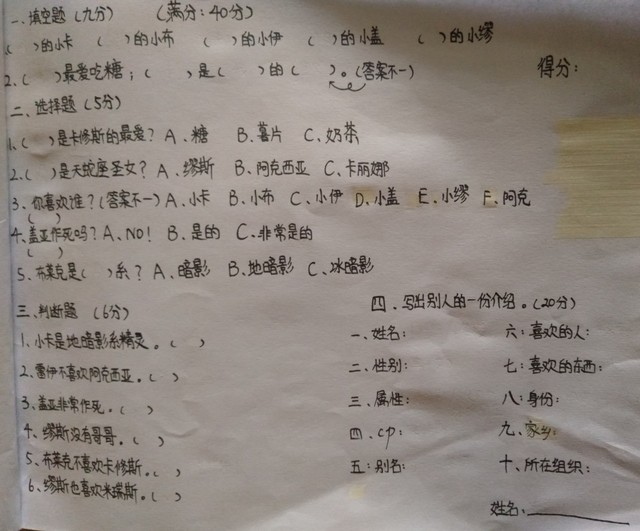 一.填空题(九分) (满分:40分)
1.( )的小卡 ( )的小布 ( )的小伊 ( )的小盖 ( )的小缪
2.( )最爱吃糖;( )是( )的( )。(答案不一) 得分:
二、选择题(5分)
1.( )是卡修斯的最爱? A、糖 B.薯片 C、奶茶
2.( )是天蛇座圣女? A、缪斯 B、阿克西亚 C、卡丽娜
3、你喜欢谁?(答案不一) A、小卡 B、小布 C、小伊 D、小盖 E、小缪 F、阿克
( )
4、盖亚作死吗? A、NO! B、是的 C、非常是的
( )
5、布莱克是( )系? A、暗影 B、地暗影 C、冰暗影
三、判断题 (6分)
1、小卡是地暗影系精灵。( )
2、雷伊不喜欢阿克西亚。( )
3、盖亚非常作死。( )
4、缪斯没有哥哥。( )
5、布莱克不喜欢卡修斯。( )
6、缪斯也喜欢米瑞斯。( )
四、写出别人的一份介绍。(20分)
一、姓名: 六:喜欢的人:
二、性别: 七:喜欢的东西:
三、属性: 八:身份:
四、cp: 九、家乡:
五:别名: 十、所在组织:
姓名: